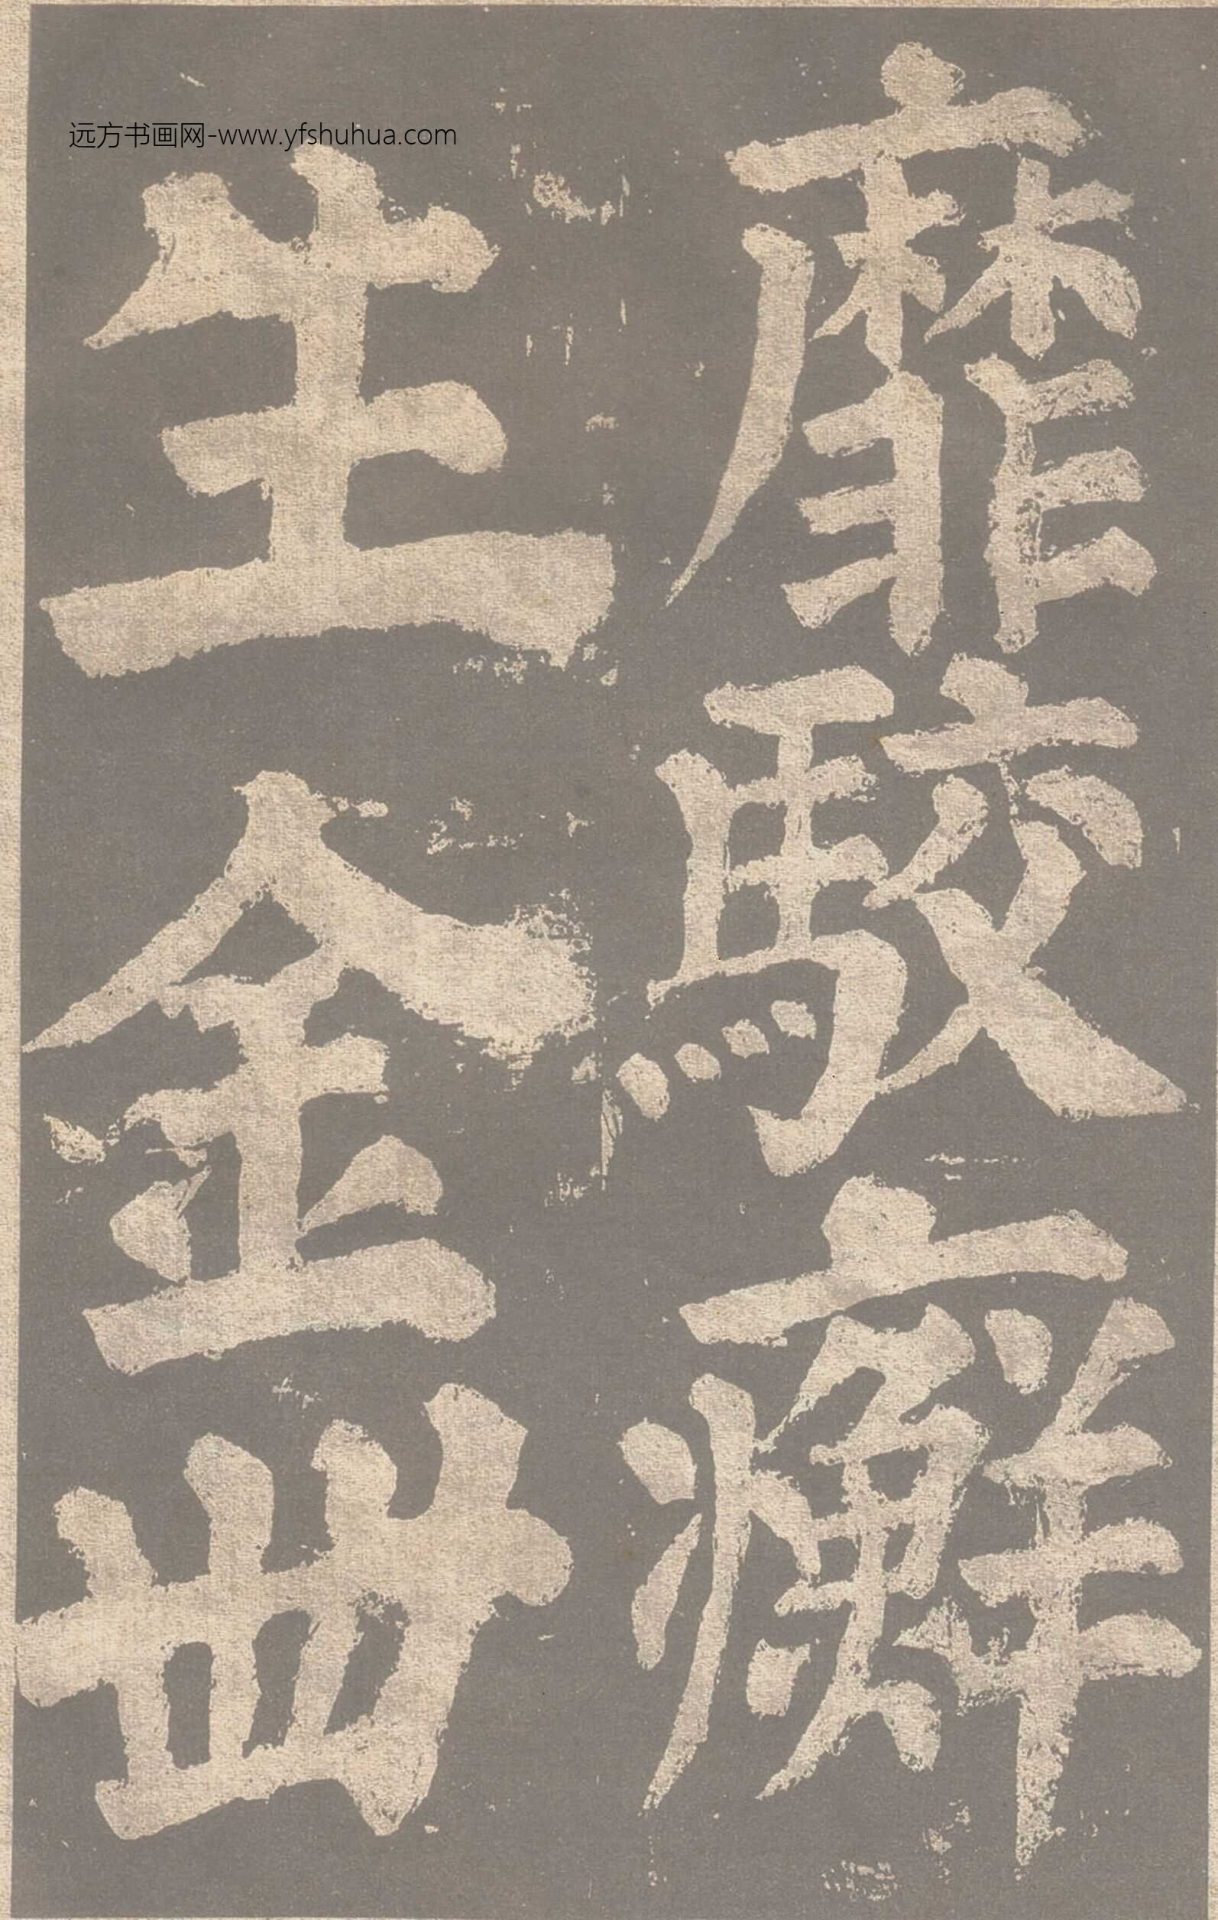 远方书画网-www.yfshuhua.com
靡駮癬
生金世